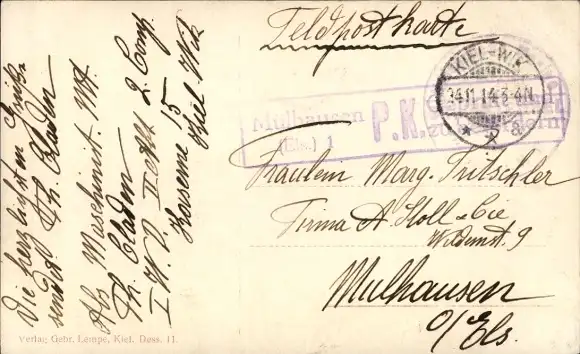 Feldpostkarte
KIEL-WIK
24.11.14.3-4N
* a
Mülhausen
(Els.) 1
P.K.
Fräulein Marg. Fritschler
Firma A. Stoll & Cie
9
Mülhausen
o/Els.
Die herzlichsten Grüße
sendet Th. Claden
Abs.
Th. Claden
2 Comp.
Kaserne 15
Kiel Wik
Verlag Gebr. Lempe, Kiel. Dess. 11.